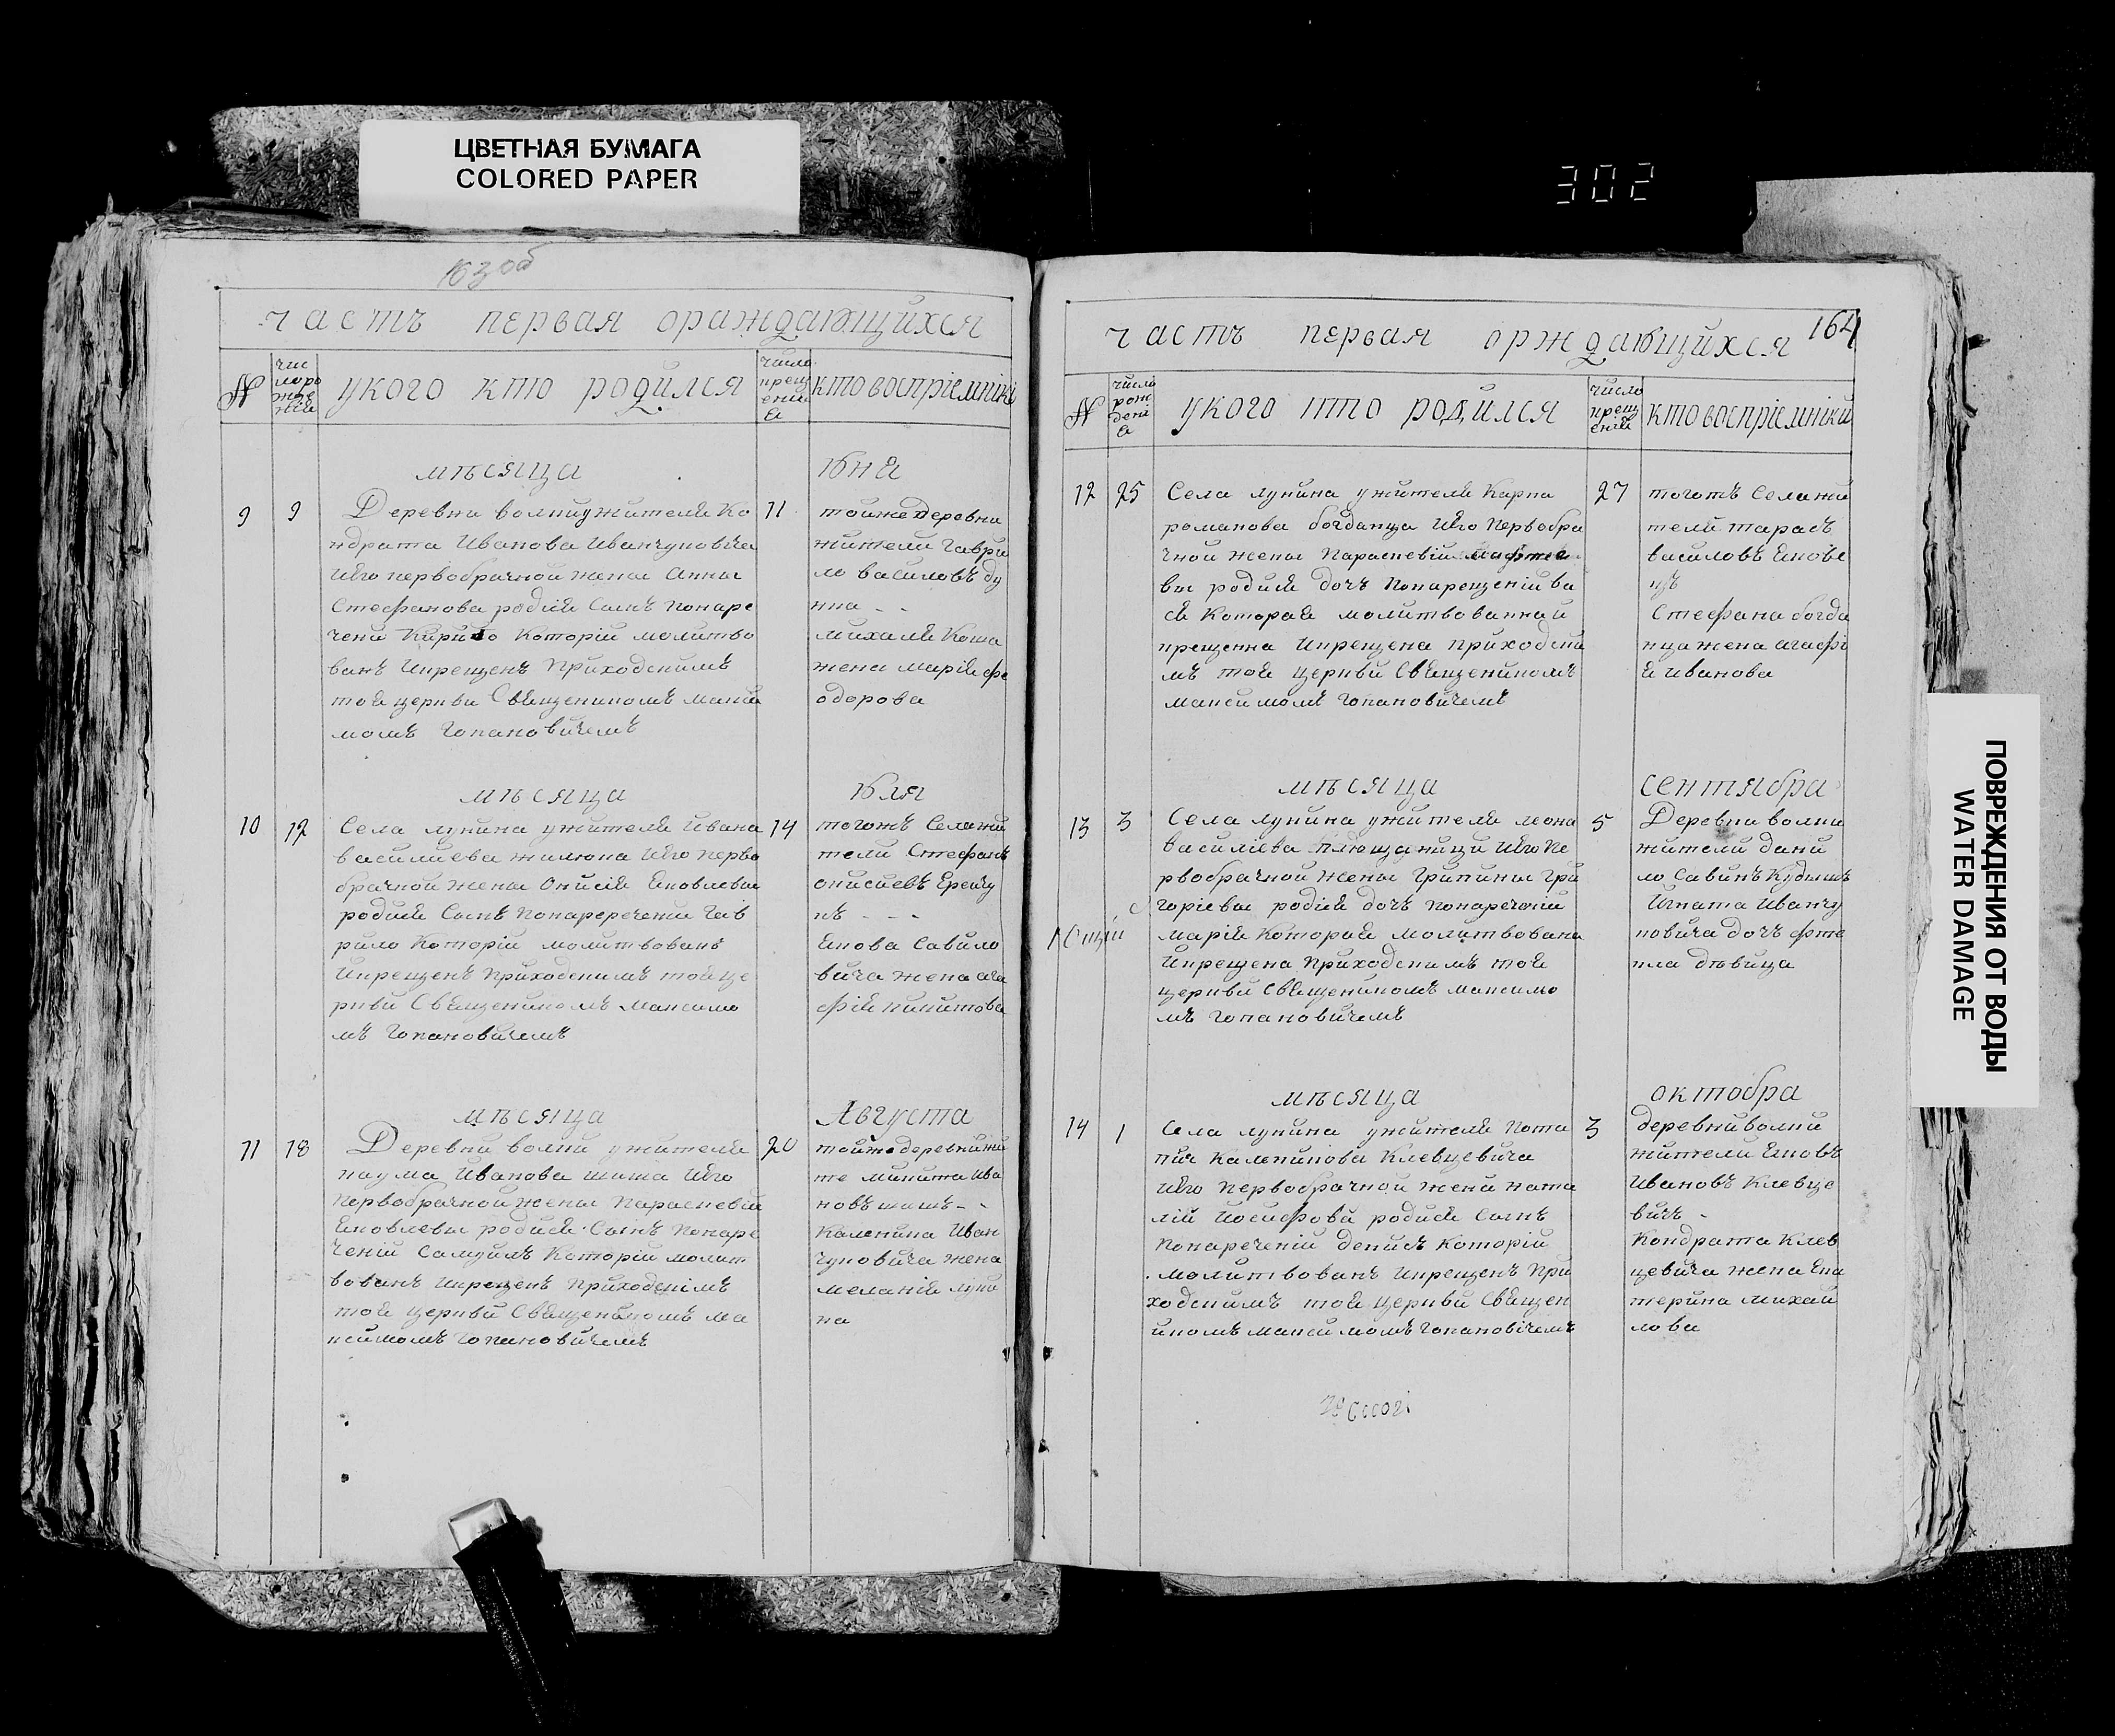 ЦВЕТНАЯ БУМАГА
COLORED PAPER
302
163 об
часть первая ораждающихся
№
чис
лоро
жде
ній
укого кто родился
число
крещ
ені
а
кто воспріемнікі
мѣсяца Юня
9 9
Деревни волкиужителя Ко
ндрата Иванова Иванчуковича
Иего первобрачной жены Анны
Стефанова родися Сынъ Понаре
чени Которій молитво
ванъ Икрещенъ Приходскимъ
той церкви Священикомъ Макси
момъ Гопановичемъ
11
тойже деревни
жители Гаври
ло василовъ
михаля Коша
жена марія фе
одорова
мѣсяца Юля
10 12
Села лунина ужителя Ивана
василиева жилюка Иего перво
брачной жены Онисія Яковлевы
родися Сынъ Понареречени Гав
рило Которій молитвованъ
Икрещенъ Приходскимъ той це
ркви Священикомъ Максимо
мъ Гопановичемъ
14
тогожъ Селажи
тели Стефанъ
онисиевъ
нъ - - -
Якова Савило
вича жена ага
фія никитова
мѣсяца Августа
11 18
Деревни волки ужителя
наума Иванова шиша Иего
Первобрачной жены Параскевіи
Яковлевы родися Сынъ Понаре
ченій Самуилъ Которій молит
вованъ Икрещенъ Приходскімъ
той церкви Священикомъ ма
ксимомъ Гопановичемъ
20
тойже деревни жи
те микита Ива
новъ шишъ - -
Каленика Иван
чуковича жена
меланія луки
на
164
часть первая орждающихся
№
число
рож
дені
а
укого кто родился
число
крещ
еній
кто воспріемніки
12 25
Села лунина ужителя Карпа
романова богданца Иего Первобра
чной жены Параскевіи
вы родися дочъ Понарещеній ва
ся Которая молитвованнай
крещенна Икрещена Приходски
мъ той церкви Священикомъ
максимомъ Гопановичемъ
27
тогожъ Селажи
тели тарасъ
василовъ Яковe
цъ
Стефана богда
нца жена агафі
я Иванова
мѣсяца сентября
13 3
Села лунина ужителя леона
василіева Плющаници Иего Пе
рвобрачной жены Грипины Гри
горіевы родися дочъ Понареченій
марія Которая молитвована
Икрещена Приходскимъ той
церкви Священикомъ максимо
мъ Гопановичемъ
5
Деревни волки
жители дани
ло Савинъ Кудышъ
Игната Иванчу
ковича дочъ фте
кла дѣвица
мѣсяца октобра
14 1
Села лунина ужителя Пота
пія Каленикова Клевцевича
Иего Первобрачной жени ната
лій Иосифови родися Сынъ
Понареченій денисъ Которій
молитвованъ Икрещенъ При
ходскимъ той церкви Священ
икомъ максимомъ Гопановічемъ
3
деревни волки
жители Яковъ
Ивановъ Клевце
вичъ -
Кондрата Клев
цевича жена Ека
терина михай
лова
ПОВРЕЖДЕНИЯ ОТ ВОДЫ
WATER DAMAGE